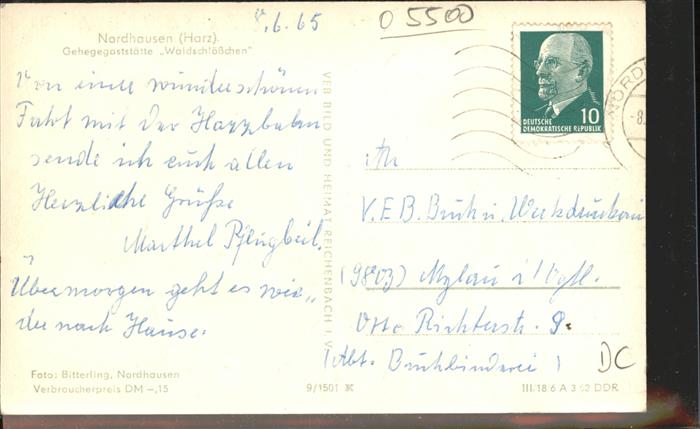 .6.65
O 5500
Nordhausen (Harz).
Gehegegaststätte „Waldschlößchen"
Von einer wunderschönen
Fahrt mit der Harzbahn
sende ich euch allen
Herzliche Grüße
Marthel Pflugbeil.
Übermorgen geht es wie„
der nach Hause.
Foto: Bitterling, Nordhausen
Verbraucherpreis DM -,15
VEB BILD UND HEIMAT REICHENBACH I. V.
9/1501
DEUTSCHE
DEMOKRATISCHE REPUBLIK
10
NORDH
-8.
An
V.E.B. Buch u. Werkdruckerei
(9803) Mylau i/Vgtl.
Otto Richterstr. 9.
(Abt. Buchbinderei)
DC
III/18/6 A 3 62 DDR